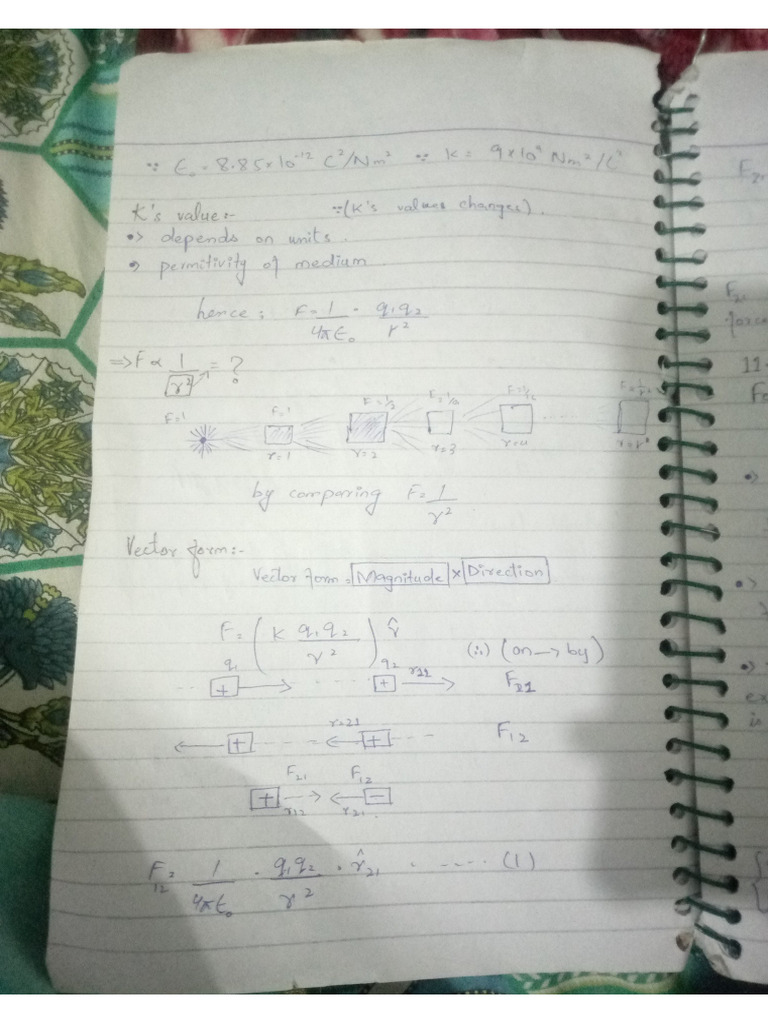 ∵ ε₀ = 8.85×10⁻¹² C²/Nm² ∵ K = 9×10⁹ Nm²/C²
K's value:- ∵(K's values changes).
•> depends on units.
•> permitivity of medium
hence; F = 1/4πε₀ · q₁q₂/r²
=> F ∝ 1/r² = ?
F=1 F=1 F=1/3 F=1/16 F=1/r²
r=1 r=2 r=3 r=4 r=r²
by comparing F = 1/r²
Vector form:-
Vector form = Magnitude × Direction
F = (K q₁q₂/r²) r̂ (∴) (on → by)
q₁ q₂
+ + r₁₂ F₂₁
r=21
+ + F₁₂
F₂₁ F₁₂
+ −
r₁₂ r₂₁
F₁₂ = 1/4πε₀ · q₁q₂/r² · r̂₂₁ · ---- (1)
F₂₁
force
11.